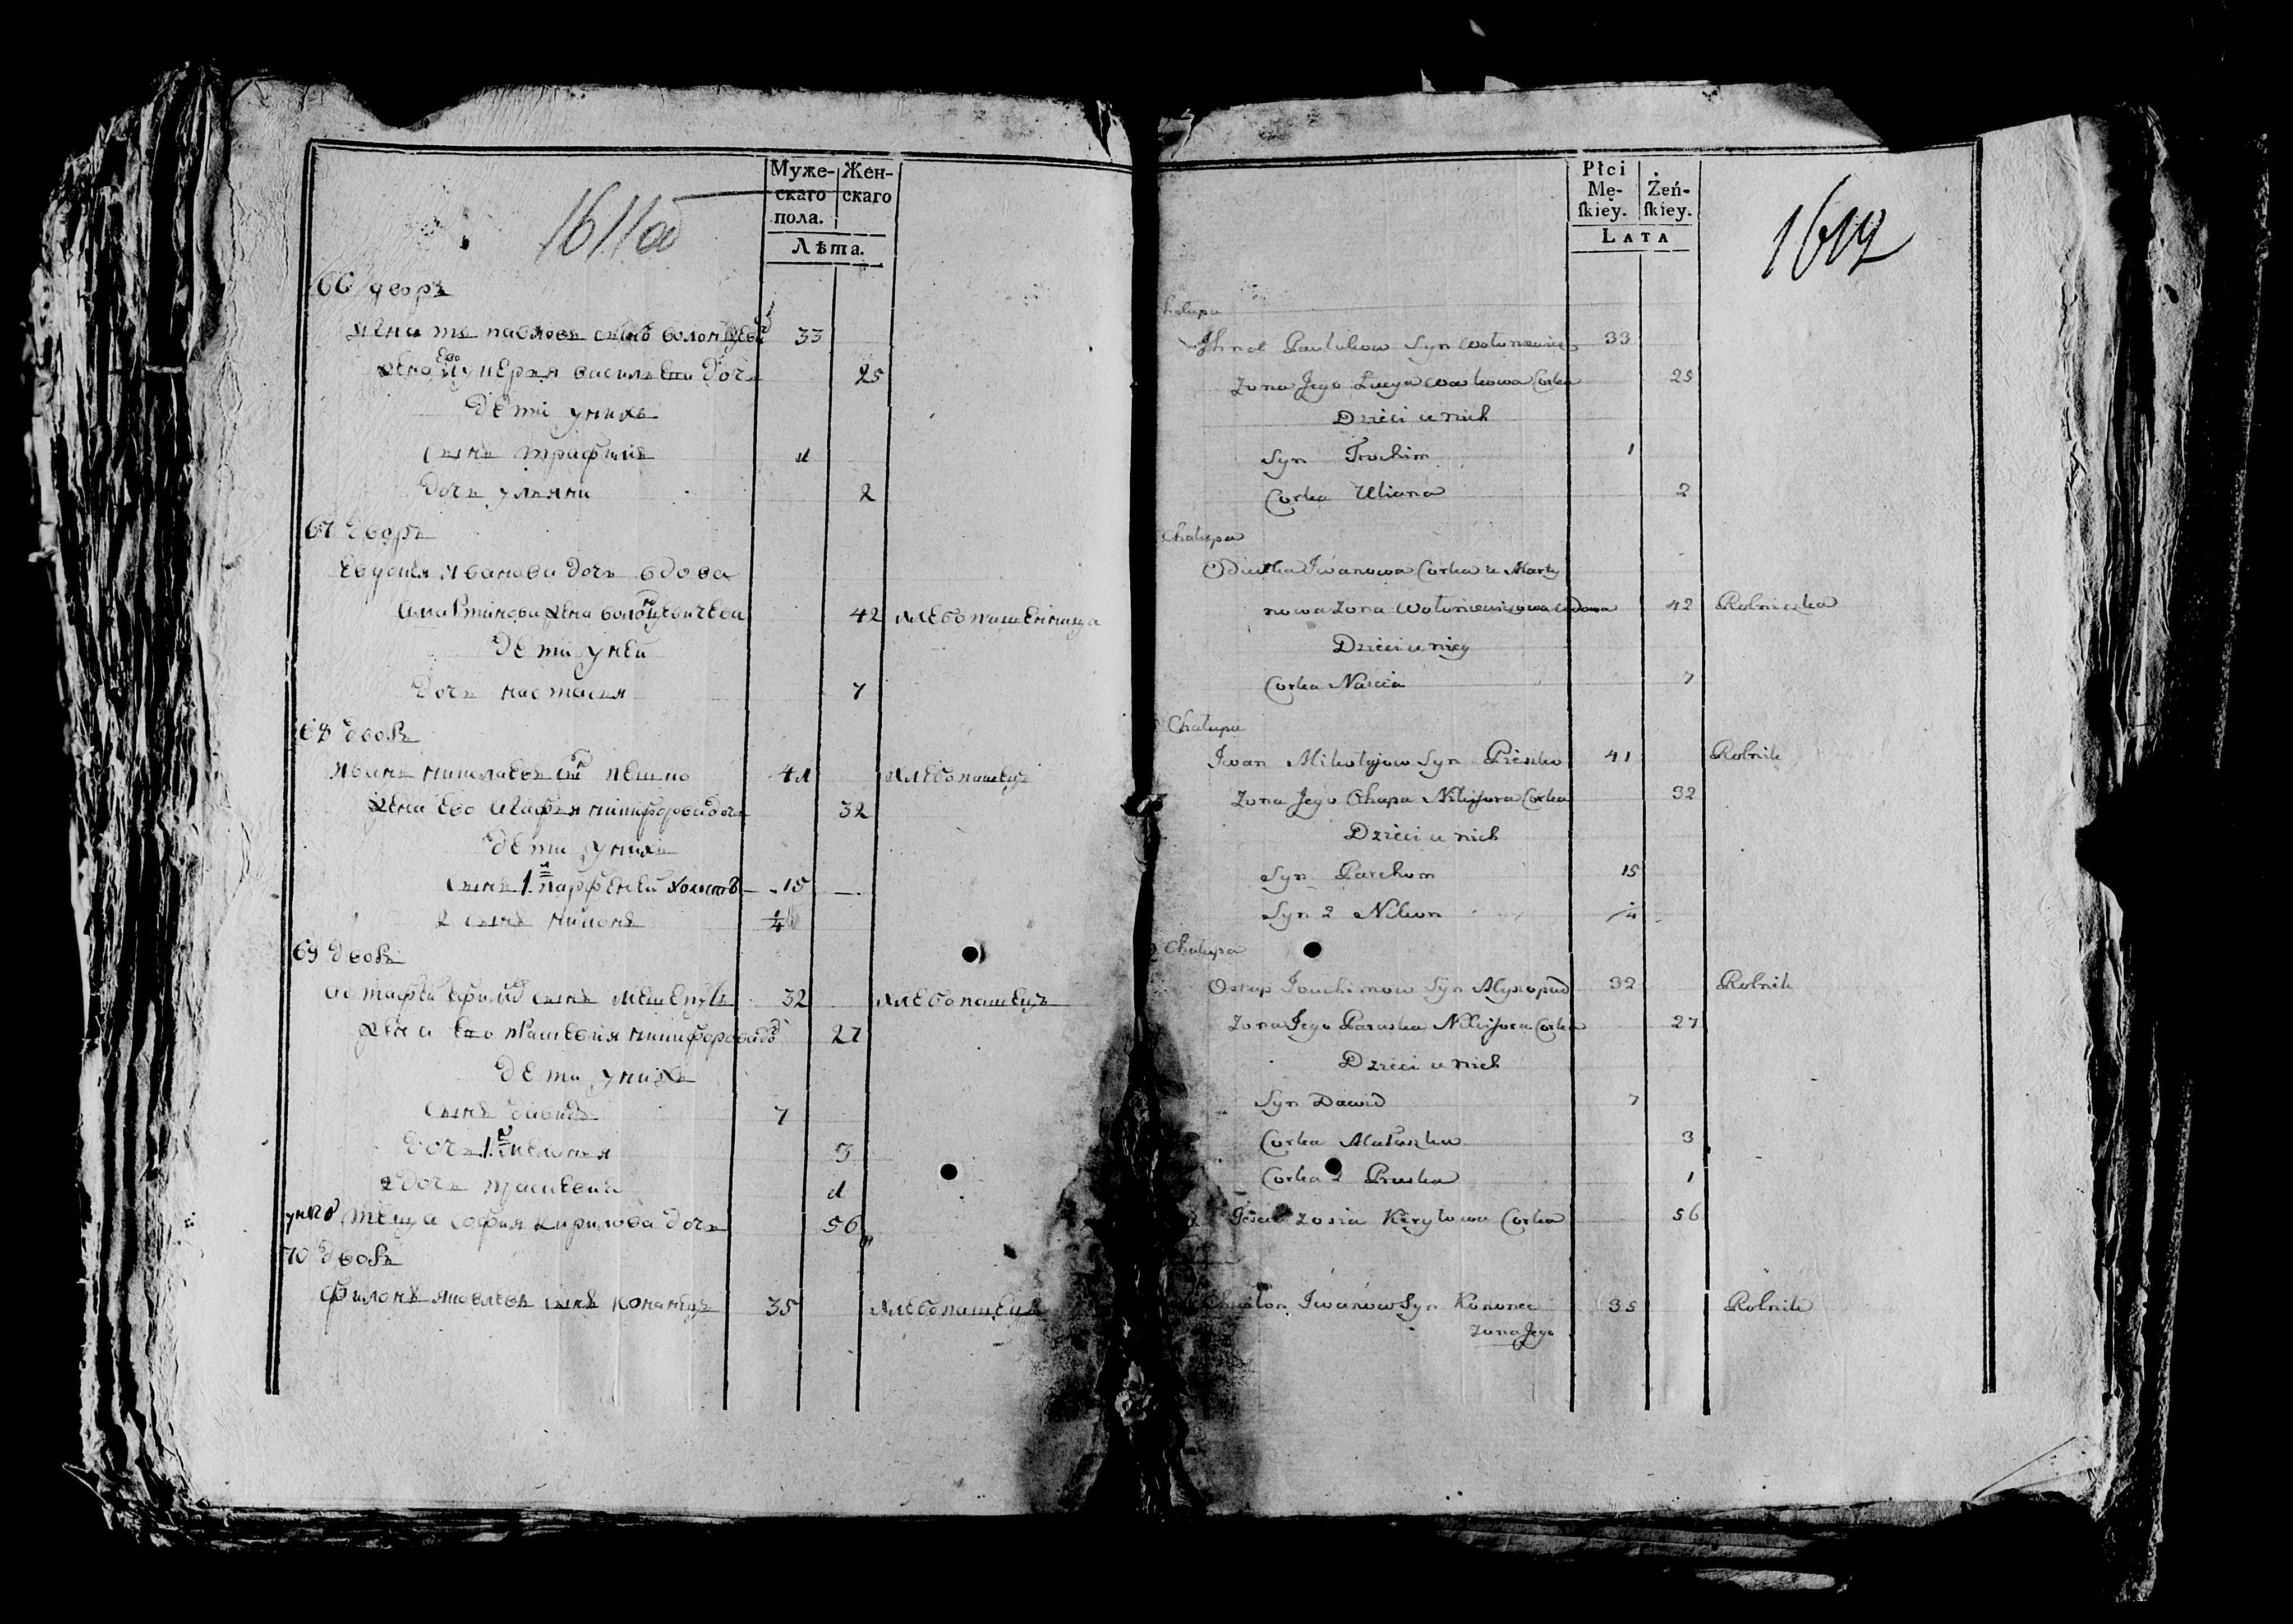 1611а
Муже-
скаго
пола.
Жен-
скаго
Лѣта.
66 дворъ
Игнатъ павловъ сынъ 33
жена Его лукерья василева дочь 25
дети унихъ
сынъ трафимъ 1
дочь ульяна 2
67 дворъ
Евдокия Иванова дочь вдова
амартинова жена 42 хлебопашенница
дети уней
дочь настасья 7
68 дворъ
Иванъ николаевъ сынъ пешко 41 хлебопашецъ
жена Ево агафья никифорова дочь 32
дети унихъ
сынъ 1й парфеней холостъ 15
2 сынъ никонъ 4
69 дворъ
Астафей сынъ 32 хлебопашецъ
жена Ево никифорова д 27
дети унихъ
сынъ давидъ 7
дочь 1я меланья 3
2 дочь 1
унего теща софия кирилова дочь 56
70 дворъ
Филонъ яковлевъ сынъ кононецъ 35 хлебопашецъ
Płci
Mę-
ſkiey.
Żeń-
ſkiey.
LATA
1612
Chałupa
Ihnat Pawlukow Syn Wołoncewicz 33
Zona Jego Lucya Waskowa Corka 25
Dzieci u nich
Syn Trochim 1
Corka Uliana 2
Chałupa
Odarka Iwanowa Corka a Marty
nowa Zona wdowa 42 Rolniczka
Dzieci u niey
Corka Nascia 7
Chałupa
Iwan Mikołajow Syn Pieszko 41 Rolnik
Zona Jego Ohapa Nikifora Corka 32
Dzieci u nich
Syn Parchom 15
Syn 2 Nikon 4
Chałupa
Ostap Jouchimow Syn 32 Rolnik
Zona Jego Paraska Nikifora Corka 27
Dzieci u nich
Syn Dawid 7
Corka Małaszka 3
Corka 2 Pruska 1
Zosia Kiryłowa Corka 56
Iwanow Syn Kononec 35 Rolnik
Zona Jego